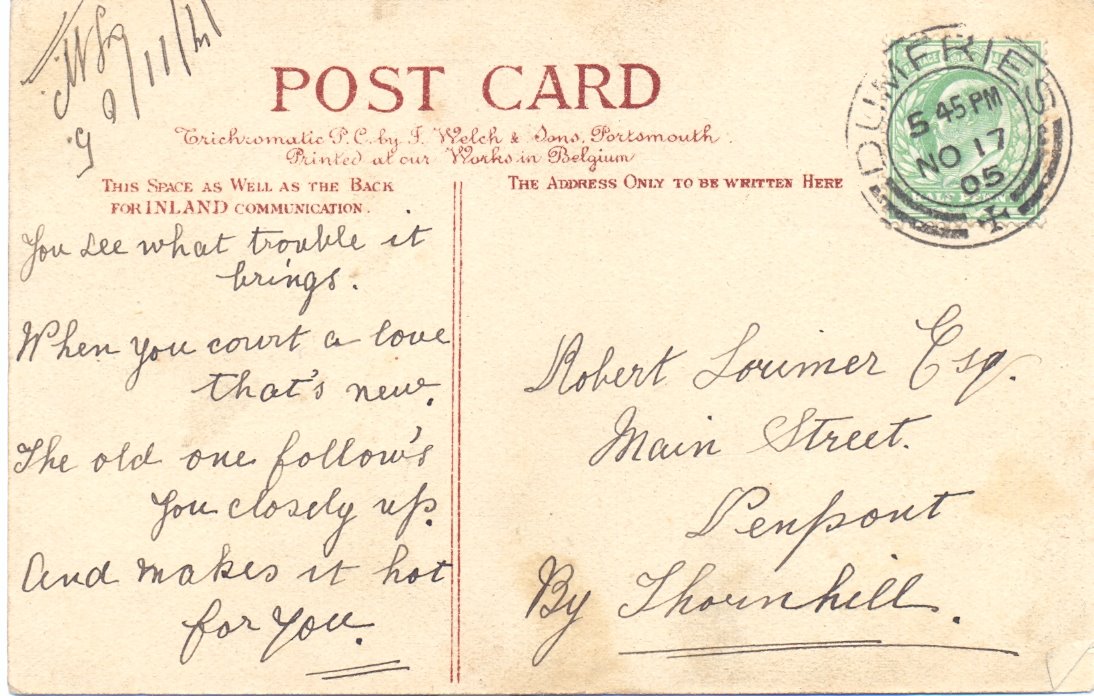 9/11/
POST CARD
Trichromatic P.C. by J. Welch & Sons, Portsmouth
Printed at our Works in Belgium
THIS SPACE AS WELL AS THE BACK
FOR INLAND COMMUNICATION.
THE ADDRESS ONLY TO BE WRITTEN HERE
DUMFRIES
5 45 PM
NO 17
05
You see what trouble it
brings.
When you court a love
that's new.
The old one follow's
you closely up.
And makes it hot
for you.
Robert Lorimer Esq.
Main Street.
Penpont
By Thornhill.